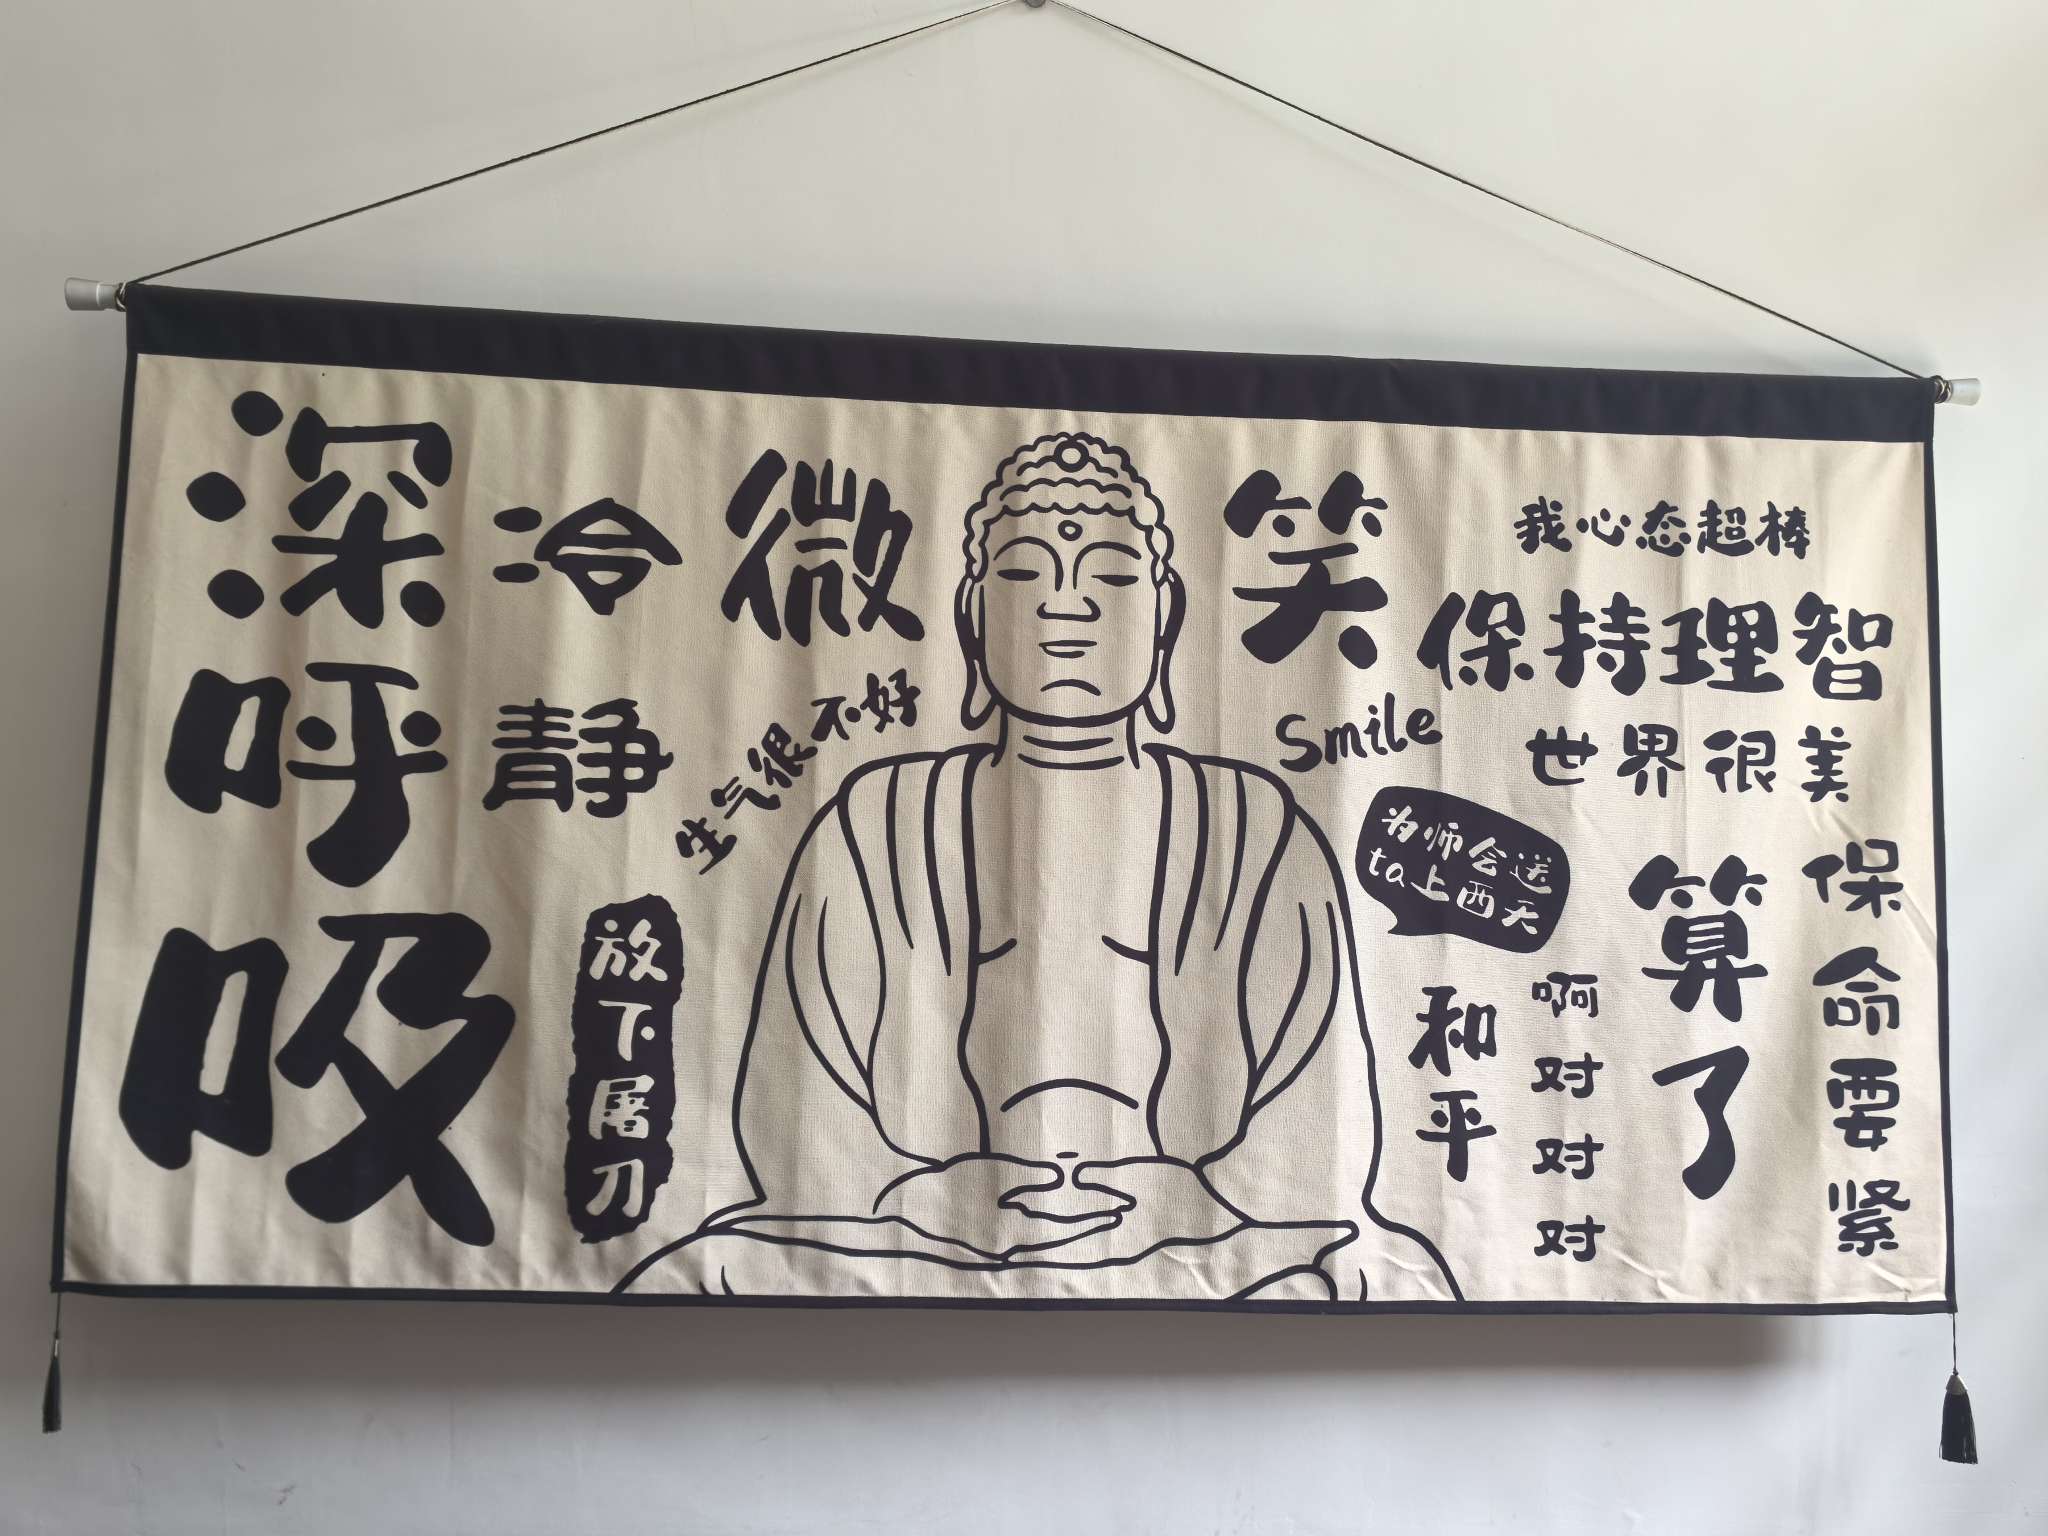 深呼吸
冷静
微笑
生气很不好
放下屠刀
Smile
我心态超棒
保持理智
世界很美
为师会送
ta上西天
和平
啊对对对
算了
保命要紧